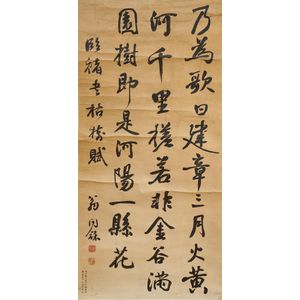 乃為歌曰建章三月火黃
河千里槎若非金谷滿
園樹即是河陽一縣花
臨褚書枯樹賦
翁同龢